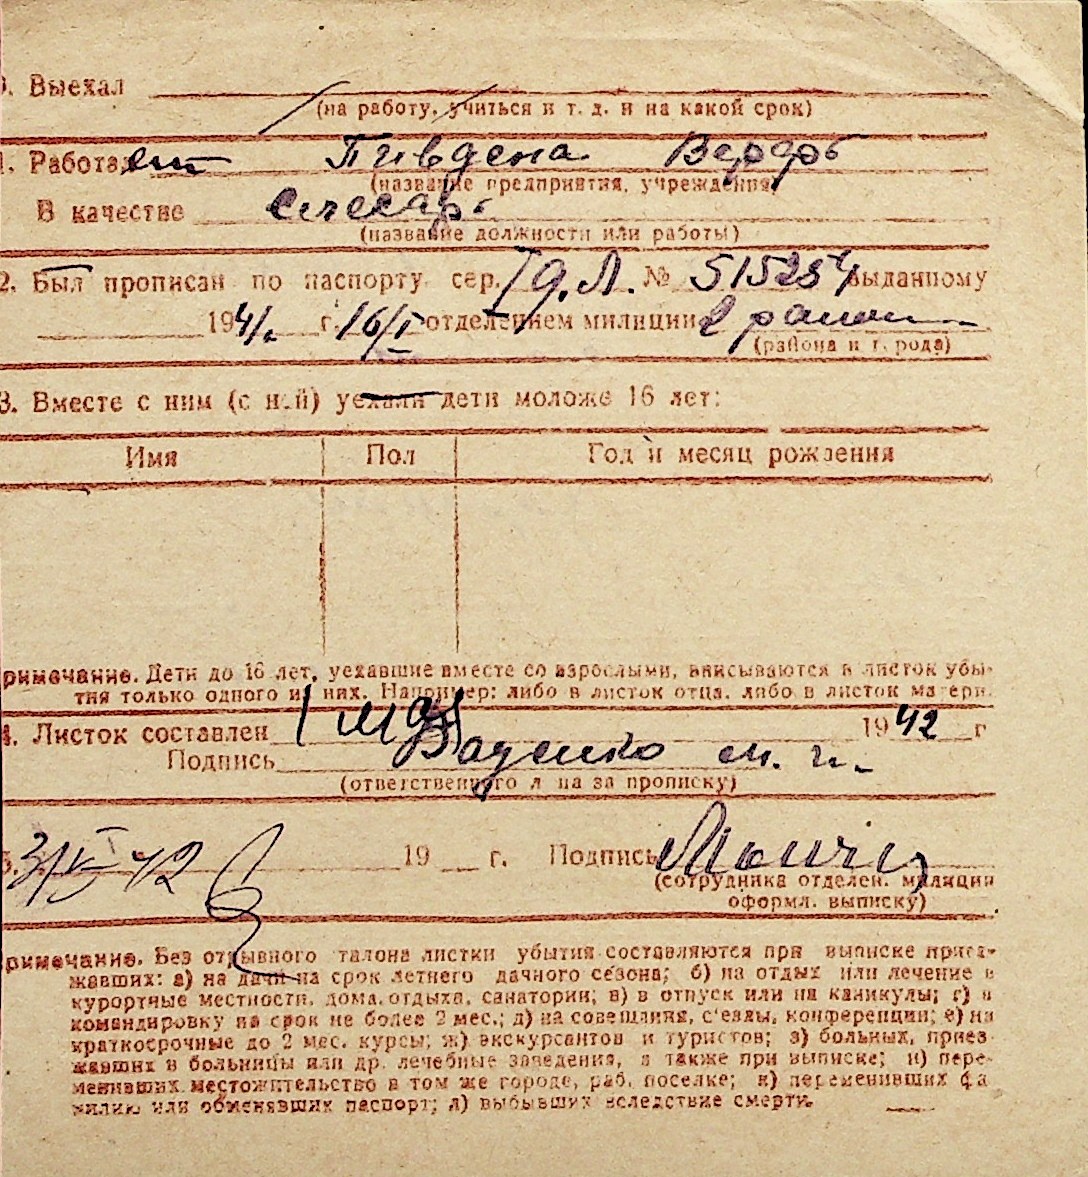 0. Выехал
(на работу, учиться и т. д. и на какой срок)
1. Работает Пивдена Верфь
(название предприятия, учреждения)
В качестве слесарь
(название должности или работы)
2. Был прописан по паспорту сер. № 515254 выданному
1941. г. 16/I отделением милиции 2 район
(района и города)
3. Вместе с ним (с ней) уехали дети моложе 16 лет:
Имя Пол Год и месяц рождения
Примечание. Дети до 16 лет, уехавшие вместе со взрослыми, вписываются в листок убы-
тия только одного из них. Например: либо в листок отца, либо в листок матери.
4. Листок составлен 1942 г
Подпись
(ответственного лица за прописку)
19 г. Подпись
(сотрудника отделен. милиции
оформл. выписку)
Примечание. Без отрывного талона листки убытия составляются при выписке приез-
жавших: а) на дачи на срок летнего дачного сезона; б) на отдых или лечение в
курортные местности, дома отдыха, санатории; в) в отпуск или на каникулы; г) в
командировку на срок не более 2 мес.; д) на совещания, с'езды, конференции; е) на
краткосрочные до 2 мес. курсы; ж) экскурсантов и туристов; з) больных, приез-
жавших в больницы или др. лечебные заведения, а также при выписке; и) пере-
менивших местожительство в том же городе, раб. поселке; к) переменивших фа
милию или обменявших паспорт; л) выбывших вследствие смерти.